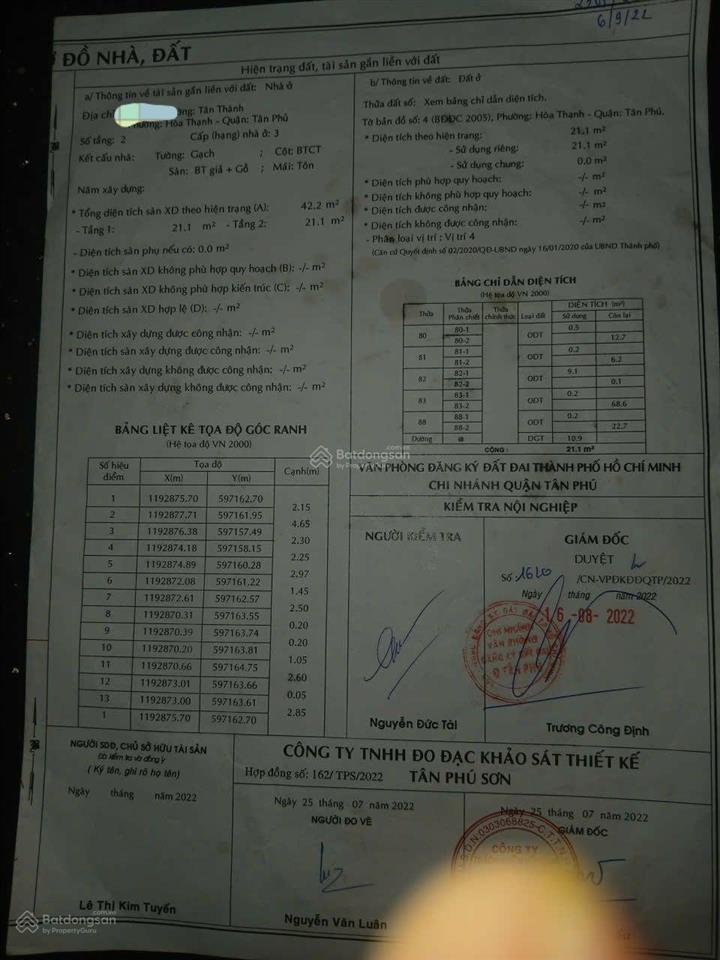 6/9/22
ĐỒ NHÀ, ĐẤT
Hiện trạng đất, tài sản gắn liền với đất
a/ Thông tin về tài sản gắn liền với đất: Nhà ở
Địa chỉ Tân Thành
Phường: Hòa Thạnh - Quận: Tân Phú
Số tầng: 2 Cấp (hạng) nhà ở: 3
Kết cấu nhà: Tường: Gạch ; Cột: BTCT
Sàn: BT giả + Gỗ ; Mái: Tôn
Năm xây dựng:
* Tổng diện tích sàn XD theo hiện trạng (A): 42.2 m²
- Tầng 1: 21.1 m² - Tầng 2: 21.1 m²
- Diện tích sàn phụ nếu có: 0.0 m²
* Diện tích sàn XD không phù hợp quy hoạch (B): -/- m²
* Diện tích sàn XD không phù hợp kiến trúc (C): -/- m²
* Diện tích sàn XD hợp lệ (D): -/- m²
* Diện tích xây dựng được công nhận: -/- m²
* Diện tích sàn xây dựng được công nhận: -/- m²
* Diện tích xây dựng không được công nhận: -/- m²
* Diện tích sàn xây dựng không được công nhận: -/- m²
BẢNG LIỆT KÊ TỌA ĐỘ GÓC RANH
(Hệ tọa độ VN 2000)
Số hiệu điểm Tọa độ Cạnh(m)
X(m) Y(m)
1 1192875.70 597162.70
2.15
2 1192877.71 597161.95
4.65
3 1192876.38 597157.49
2.30
4 1192874.18 597158.15
2.25
5 1192874.89 597160.28
2.97
6 1192872.08 597161.22
1.45
7 1192872.61 597162.57
2.50
8 1192870.31 597163.55
0.20
9 1192870.39 597163.74
0.20
10 1192870.20 597163.81
1.05
11 1192870.66 597164.75
2.60
12 1192873.01 597163.66
0.05
13 1192873.00 597163.61
2.85
1 1192875.70 597162.70
b/ Thông tin về đất: Đất ở
Thửa đất số: Xem bảng chỉ dẫn diện tích.
Tờ bản đồ số: 4 (BĐĐC 2005), Phường: Hòa Thạnh - Quận: Tân Phú.
* Diện tích theo hiện trạng: 21.1 m²
- Sử dụng riêng: 21.1 m²
- Sử dụng chung: 0.0 m²
* Diện tích phù hợp quy hoạch: -/- m²
* Diện tích không phù hợp quy hoạch: -/- m²
* Diện tích được công nhận: -/- m²
* Diện tích không được công nhận: -/- m²
- Phân loại vị trí : Vị trí 4
(Căn cứ Quyết định số 02/2020/QĐ-UBND ngày 16/01/2020 của UBND Thành phố)
BẢNG CHỈ DẪN DIỆN TÍCH
(Hệ tọa độ VN 2000)
Thửa Thửa Phân chiết Thửa chính thức Loại đất DIỆN TÍCH (m²)
Sử dụng Còn lại
80 80-1 ODT 0.5
80-2 12.7
81 81-1 ODT 0.2
81-2 6.2
82 82-1 ODT 9.1
82-2 0.1
83 83-1 ODT 0.2
83-2 68.6
88 88-1 ODT 0.2
88-2 22.7
Đường DGT 10.9
CỘNG : 21.1 m²
VĂN PHÒNG ĐĂNG KÝ ĐẤT ĐAI THÀNH PHỐ HỒ CHÍ MINH
CHI NHÁNH QUẬN TÂN PHÚ
KIỂM TRA NỘI NGHIỆP
NGƯỜI KIỂM TRA
Nguyễn Đức Tài
GIÁM ĐỐC
DUYỆT
Số: 1620 /CN-VPĐKĐĐQTP/2022
Ngày tháng năm 2022
16-08-2022
CHI NHÁNH
VĂN PHÒNG
ĐĂNG KÝ ĐẤT ĐAI
Q TÂN PHÚ
Trương Công Định
NGƯỜI SDĐ, CHỦ SỞ HỮU TÀI SẢN
Đã kiểm tra và đồng ý
( Ký tên, ghi rõ họ tên)
Ngày tháng năm 2022
Lê Thị Kim Tuyến
CÔNG TY TNHH ĐO ĐẠC KHẢO SÁT THIẾT KẾ
Hợp đồng số: 162/ TPS/2022 TÂN PHÚ SƠN
Ngày 25 tháng 07 năm 2022
NGƯỜI ĐO VẼ
Nguyễn Văn Luân
Ngày 25 tháng 07 năm 2022
GIÁM ĐỐC
S.D.N:0303068825-C.T.T.N
CÔNG TY
Batdongsan.com.vn
by PropertyGuru
Batdongsan.com.vn
by PropertyGuru